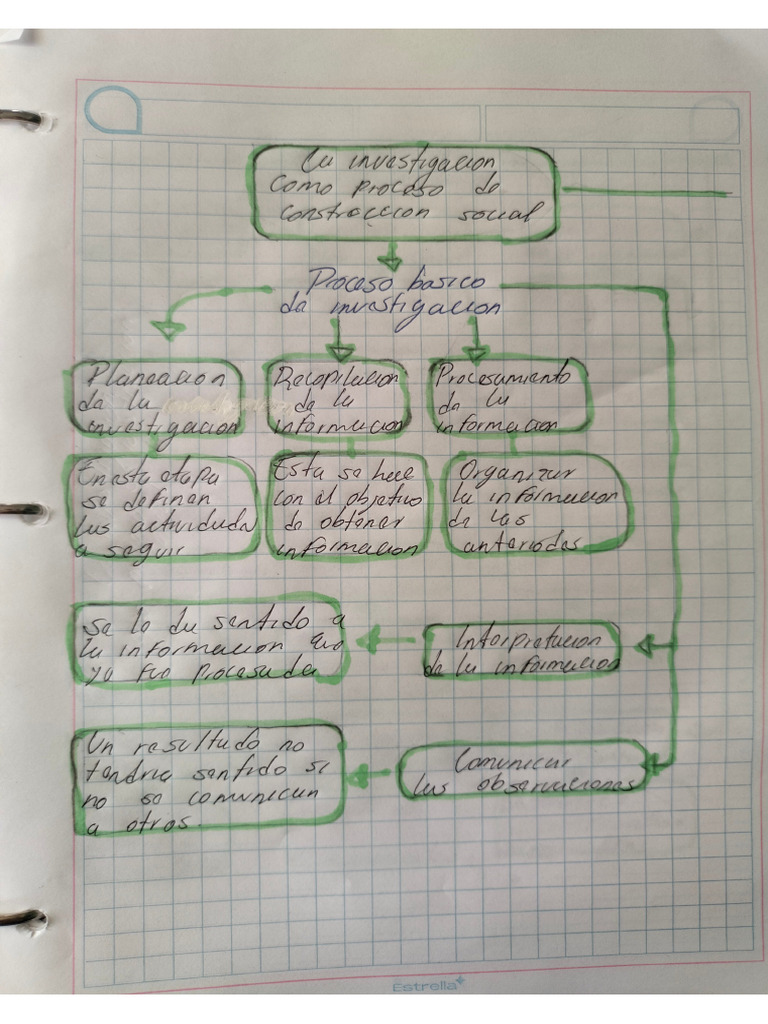 La investigacion
como proceso de
construccion social
Proceso basico
de investigacion
Planeacion
de la
investigacion
Recopilacion
de la
informacion
Procesamiento
de la
informacion
En esta etapa
se definen
las actividada
a seguir
Esta se hace
con el objetivo
de obtener
informacion
Organizar
la informacion
de las
anteriodes
Se le da sentido a
la informacion que
ya fue procesada
Interpretacion
de la informacion
Un resultado no
tendria sentido si
no se comunican
a otros.
Comunicar
las observaciones
Estrella